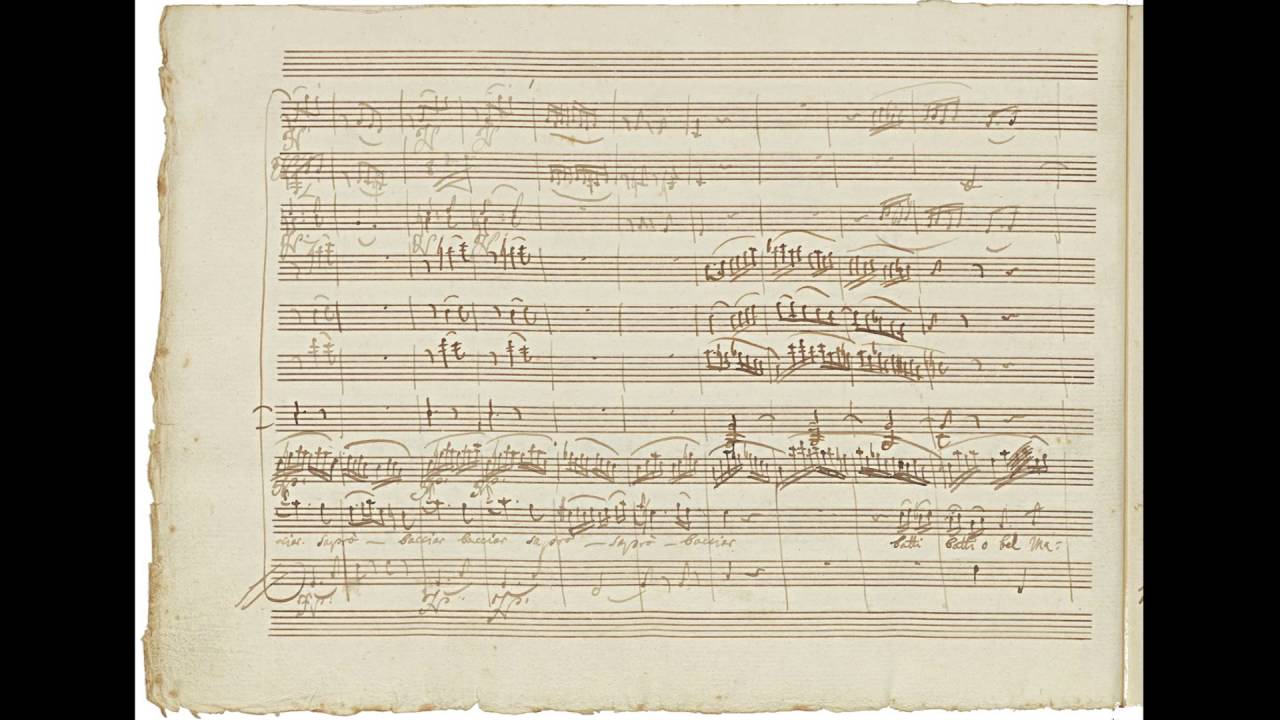 ciar. saprò — bacciar bacciar saprò — saprò — bacciar batti batti o bel Ma: